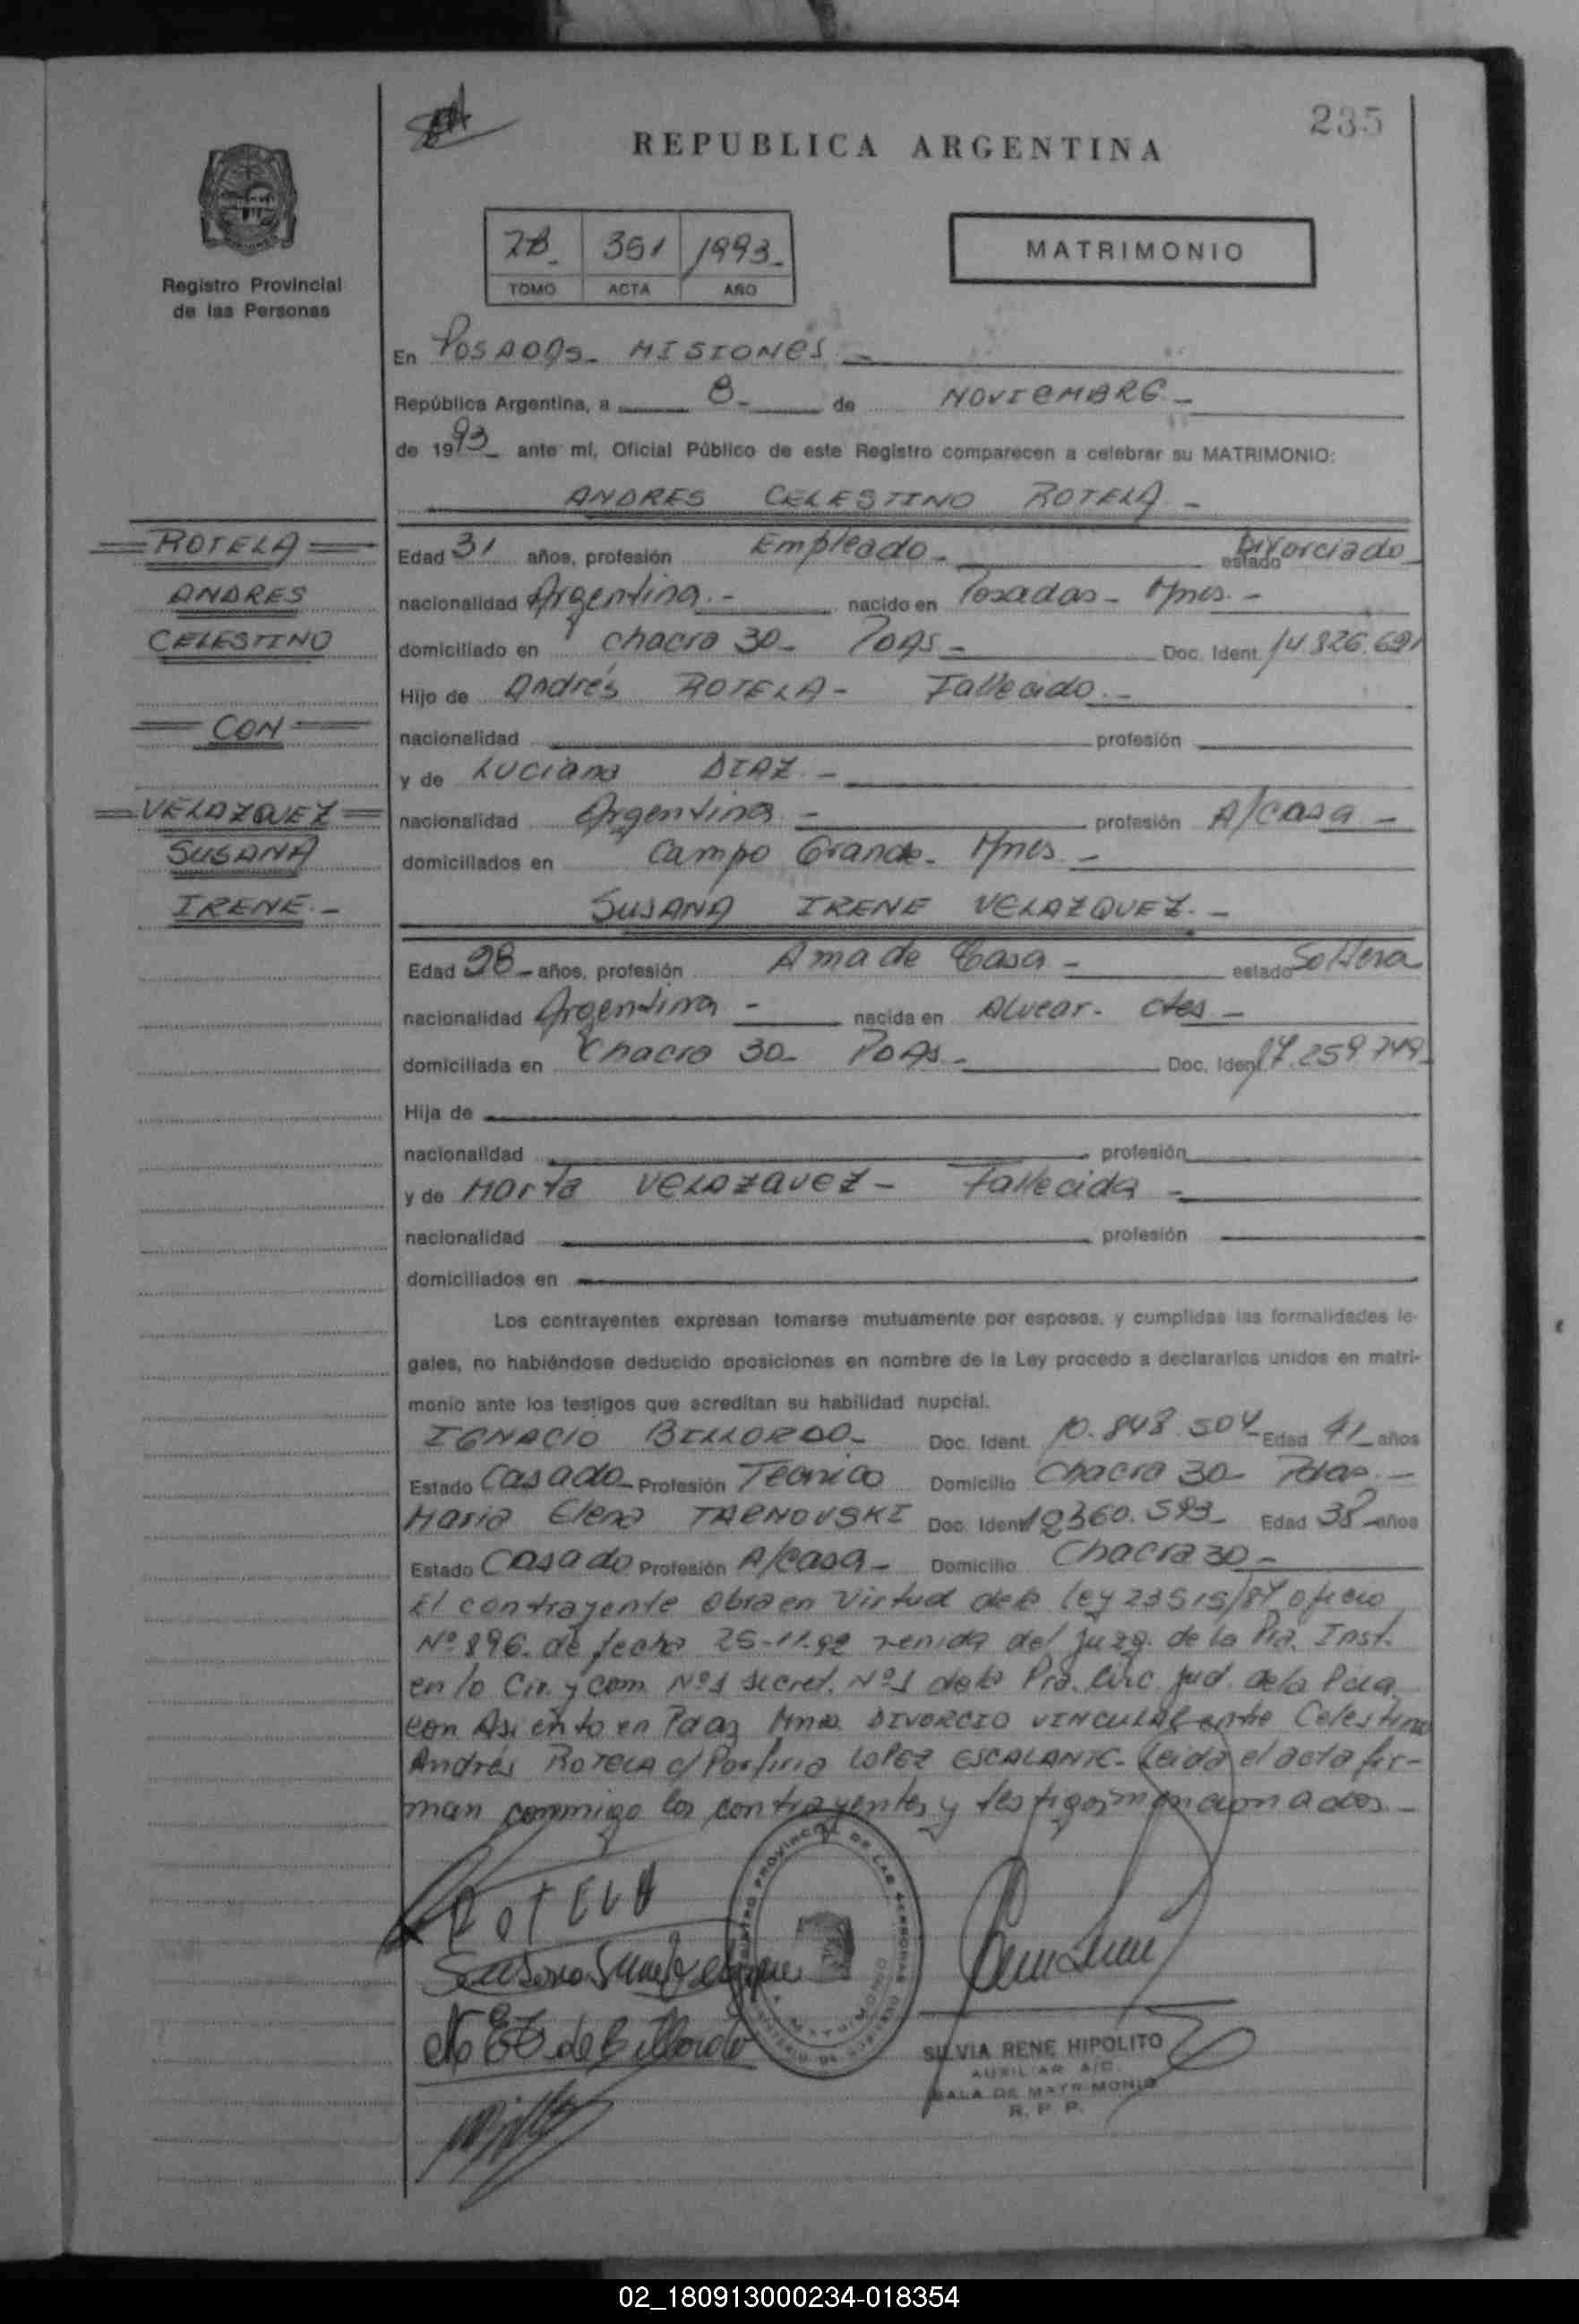 235
REPUBLICA ARGENTINA
Registro Provincial
de las Personas
2B 351 1993
TOMO ACTA AÑO
MATRIMONIO
En POSADAS - MISIONES -
República Argentina, a 8 de NOVIEMBRE -
de 1993 ante mí, Oficial Público de este Registro comparecen a celebrar su MATRIMONIO:
ANDRES CELESTINO ROTELA -
ROTELA
ANDRES
CELESTINO
CON
VELAZQUEZ
SUSANA
IRENE.-
Edad 31 años, profesión Empleado - estado Divorciado
nacionalidad Argentina.- nacido en Posadas - Mnes.-
domiciliado en chacra 30 - Pdas - Doc. Ident. 14.826.691
Hijo de Andrés ROTELA - Fallecido.-
nacionalidad profesión
y de Luciana DIAZ.-
nacionalidad Argentina - profesión A/casa -
domiciliados en Campo Grande - Mnes.-
SUSANA IRENE VELAZQUEZ.-
Edad 28 - años, profesión Ama de Casa - estado Soltera
nacionalidad Argentina - nacida en Alvear - ctes -
domiciliada en Chacra 30 - Pdas - Doc. Ident. 17.259.749
Hija de
nacionalidad profesión
y de Marta VELAZQUEZ - Fallecida -
nacionalidad profesión
domiciliados en
Los contrayentes expresan tomarse mutuamente por esposos, y cumplidas las formalidades le-
gales, no habiéndose deducido oposiciones en nombre de la Ley procedo a declararlos unidos en matri-
monio ante los testigos que acreditan su habilidad nupcial.
IGNACIO BILLORDO - Doc. Ident. 10.848.504 Edad 41 años
Estado Casado - Profesión Tecnico Domicilio Chacra 30 - Pdas.-
Maria Elena TARNOVSKI Doc. Ident. 12.360.593 - Edad 38 años
Estado Casado Profesión A/casa - Domicilio Chacra 30 -
El contrayente obra en Virtud de la ley 23515/87 oficio
Nº 896. de fecha 25-11-92 venida del juzg. de la Pra. Inst.
en lo Civ. y Com. Nº1 Secret. Nº1 de la Pra. Circ. Jud. de la Pcia.
con Asiento en Pdas Mnes. DIVORCIO VINCULAR entre Celestino
Andrés ROTELA c/ Porfiria LOPEZ ESCALANTE - Leida el acta fir-
man conmigo los contrayentes y testigos mencionados -
ROTELA
de Billordo
REGISTRO PROVINCIAL DE LAS PERSONAS
MATRIMONIO
SILVIA RENE HIPOLITO
AUXILIAR A/C.
SALA DE MATRIMONIO
R. P. P.
02_180913000234-018354